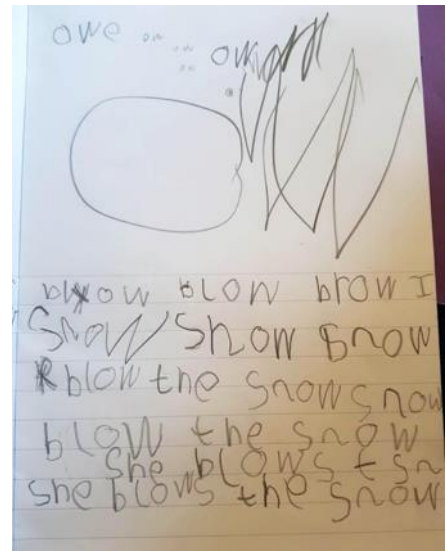 owe ow ow ow ow
blow blow blow I
Snow Snow Snow
blow the snow snow
blow the snow
She blows t sn
she blows the snow